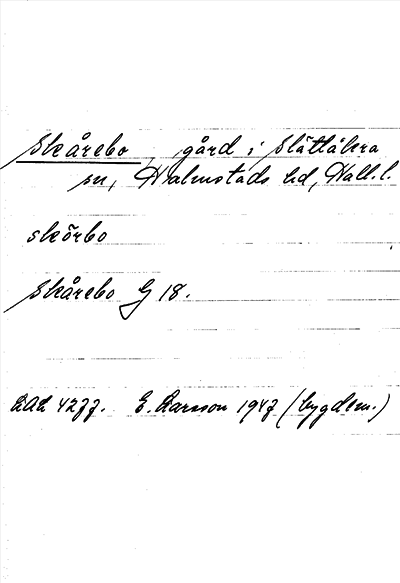 Skårebo, gård i Slättåkra
sn, Halmstads hd, Hall. l.
skörbo
Skårebo G 18.
LAL 4277. E. Larsson 1947 (bygdem.)